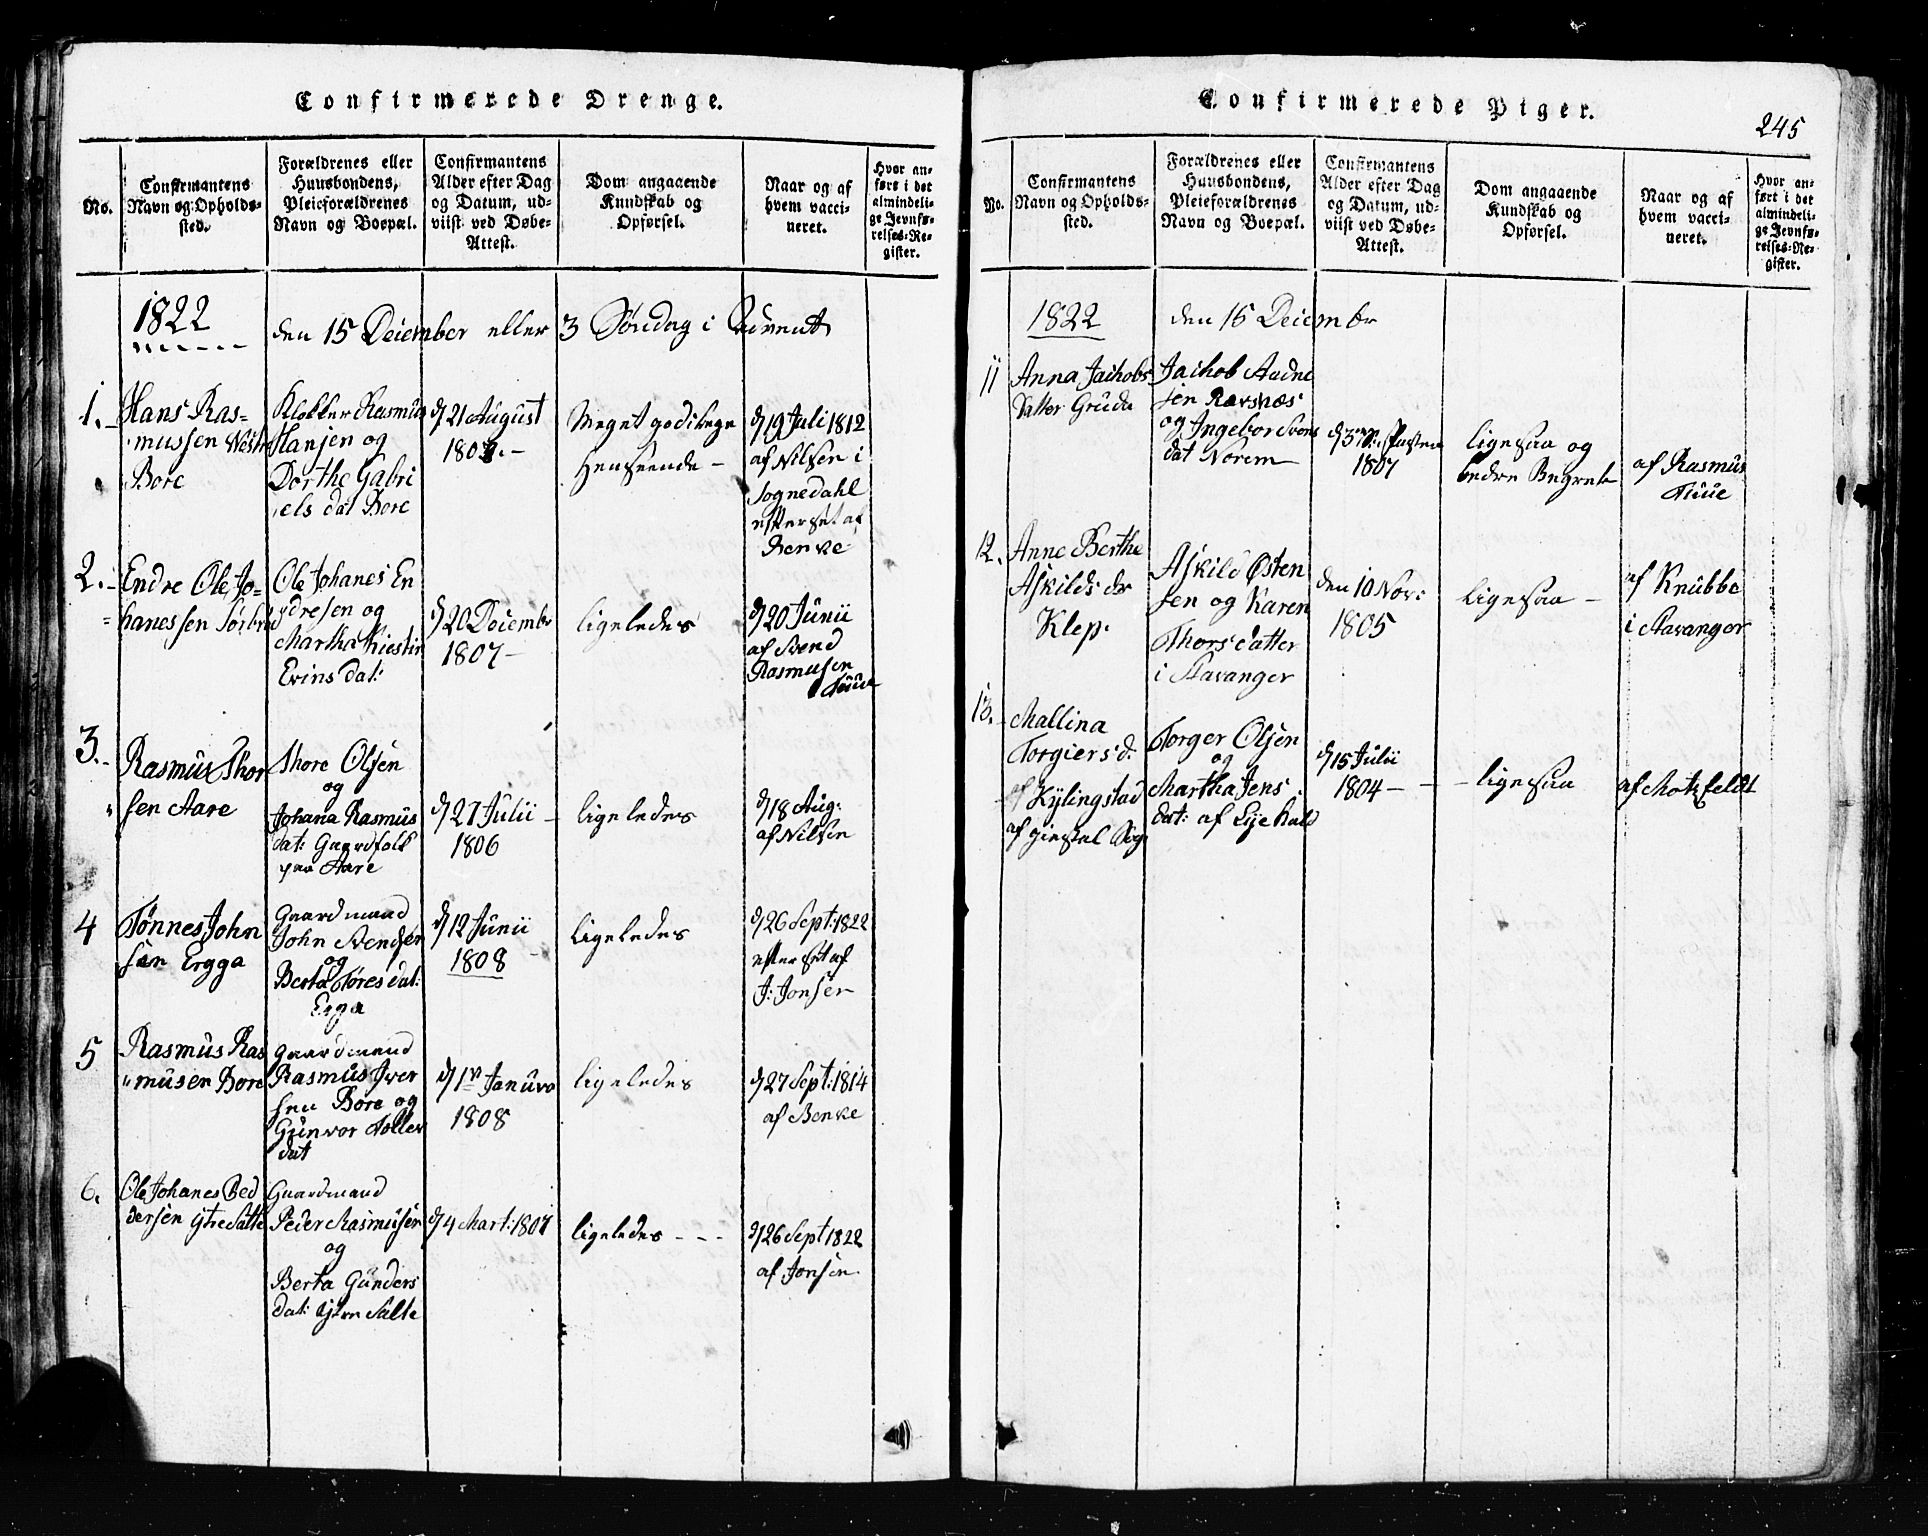 Confirmerede Drenge.
No.
Confirmantens
Navn og Opholds-
sted.
Forældrenes eller
Huusbondens,
Pleieforældrenes
Navn og Boepæl.
Confirmantens
Alder efter Dag
og Datum, ud-
viist ved Døbe-
Attest.
Dom angaaende
Kundskab og
Opførsel.
Naar og af
hvem vacci-
neret.
Hvor an-
ført i det
almindeli-
ge Jevnfø-
relses-Re-
gister.
1822
den 15 Deiember eller 3 Søndag i Advent
1.
Hans Ras-
mussen Westr
Bore
Klokker Rasmus
Hansen og
Dorthe Gabri
els dat Bore
d 21 August
Meget god i begge
Henseende -
d 19 Juli 1812
af Nilsen i
Sognedahl
efterset af
Benke
2.
Endre Ole Jo-
hanessen Sørbrød
Ole Johanes En
dresen og
Martha Kiestin
Evins dat:
d 20 Deiembr
1807 -
ligeledes
d 20 Junii
af Svend
Rasmusen
Tuue
3.
Rasmus Thor
sen Aare
Thore Olsen
og
Johana Rasmus
dat: Gaardfolk
paa Aare
d 27 Julii -
1806
ligeledes
d 18 Aug:
af Nilsen
4
Tønnes John
sen Ergga
Gaardmand
John Svendsen
og
Berta Tores dat:
Erga
d 12 Junii
1808
ligeledes
d 26 Sept: 1822
efterset af
J: Jonsen
5
Rasmus Ras
musen Bore
Gaardmand
Rasmus Iver
sen Bore og
Gunvor Toller
dat
d 1 Januro
1808
ligeledes
d 27 Sept: 1814
af Benke
6.
Ole Johanes Ped
dersen ytre Salte
Gaardmand
Peder Rasmusen
og
Berta Gunders
dat: ytre Salte
d 4 Mart: 1807
ligeledes - - -
d 26 Sept 1822
af Jonsen
Confirmerede Piger.
245
No.
Confirmantens
Navn og Opholds-
sted.
Forældrenes eller
Huusbondens,
Pleieforældrenes
Navn og Boepæl.
Confirmantens
Alder efter Dag
og Datum, ud-
viist ved Døbe-
Attest.
Dom angaaende
Kundskab og
Opførsel.
Naar og af
hvem vacci-
neret.
Hvor an-
ført i det
almindeli-
ge Jevnfø-
relses-Re-
gister.
1822
den 15 Deiembr
11
Anna Jachobs
datter Gruda
Jachob Aadne
sen Ravnaes
og Ingebor Svens
dat Norem
1807
ligesaa og
bedre Begreb
af Rasmus
Tuue
12.
Anne Berthe
Askilds dr
Klep.
Askild Østen
sen og Karen
Thorsdatter
i Stavanger
den 10 Nov:
1805
ligesaa -
af Knubbe
i Stavanger
13.
Mallina
Torgiers d:
af Kylingstad
af Giestal Sog
Torger Olsen
og
Martha Jens
dat: af Eje kald
d 15 Julii
1804 - -
- ligesaa
af Motzfeldt